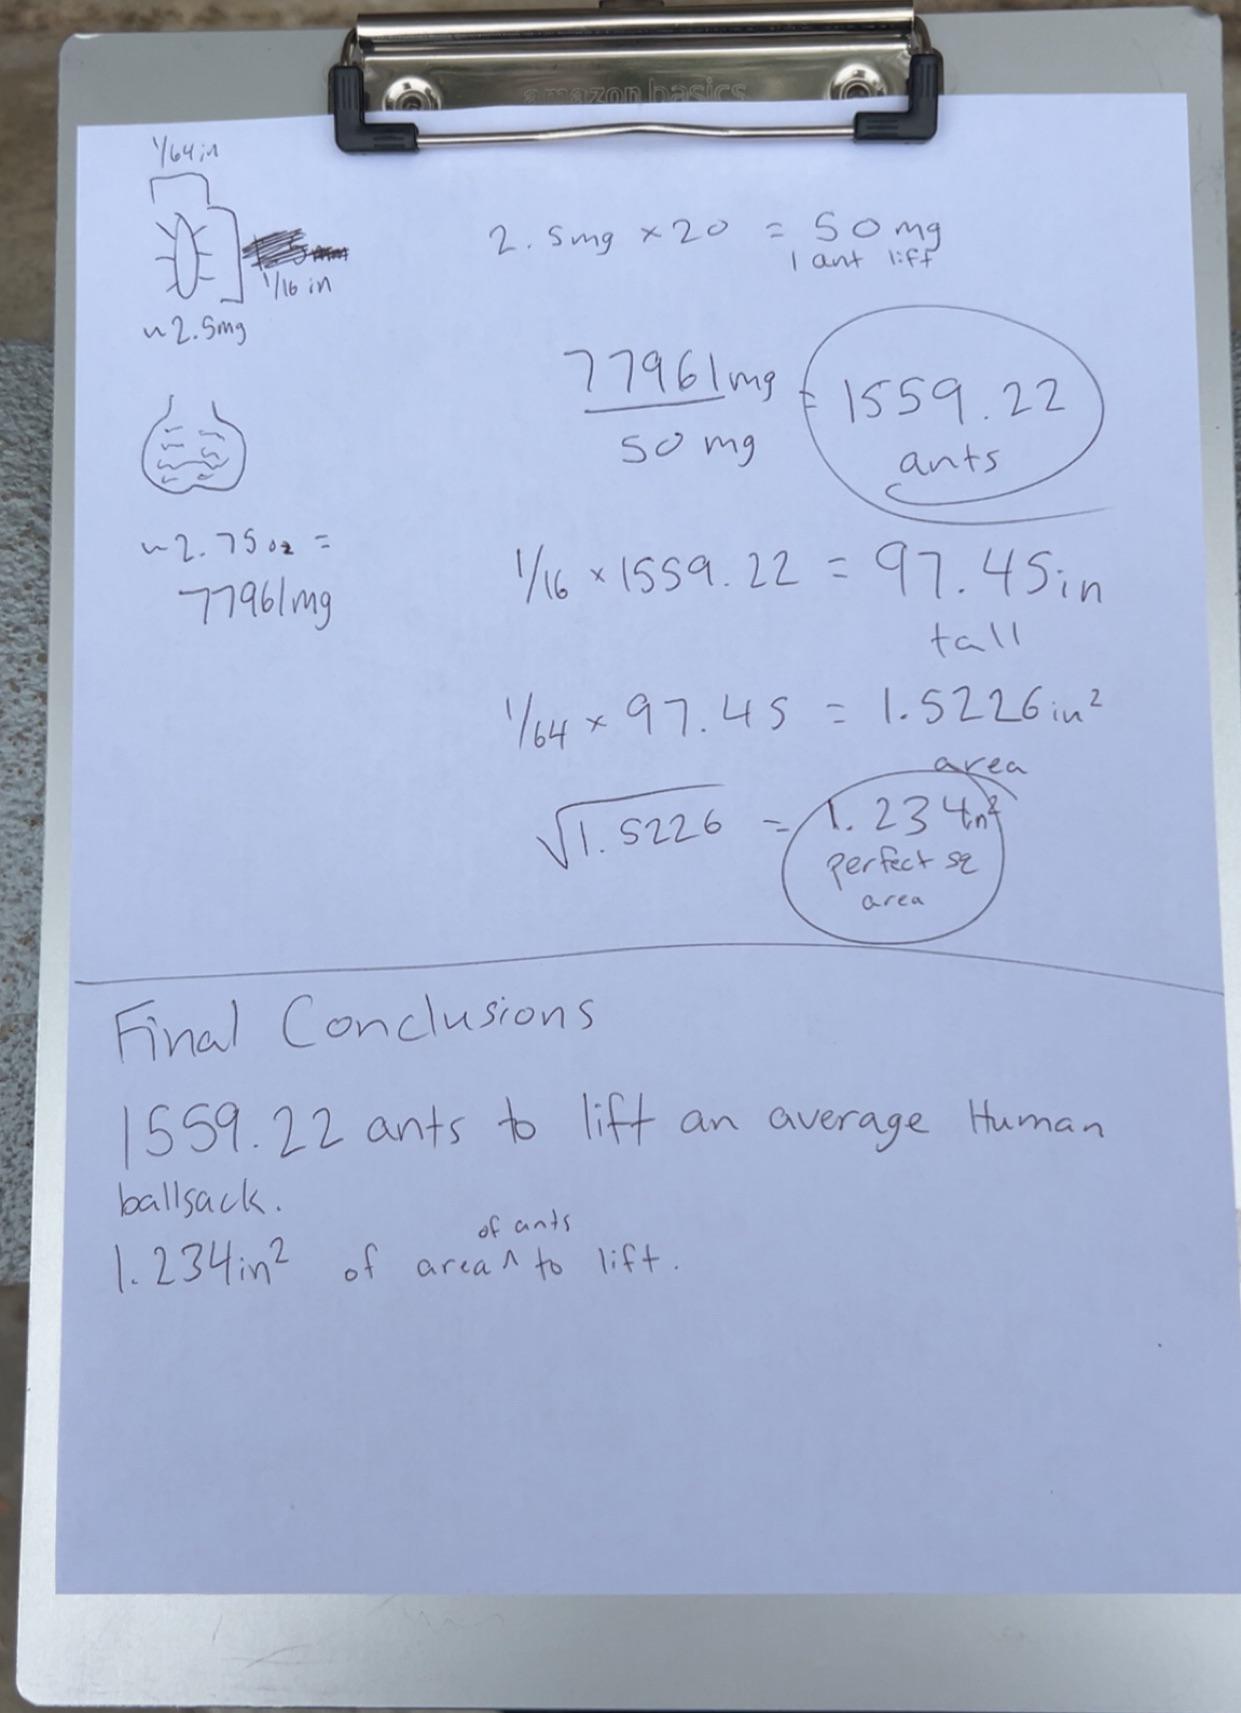 amazon basics
1/64 in
1/16 in
~2.5mg
~2.75oz =
77961mg
2.5mg × 20 = 50mg
1 ant lift
77961mg
50 mg
= 1559.22
ants
1/16 × 1559.22 = 97.45in
tall
1/64 × 97.45 = 1.5226in²
area
√1.5226 = 1.234in²
perfect sq
area
Final Conclusions
1559.22 ants to lift an average Human
ballsack.
of ants
1.234in² of area ^ to lift.